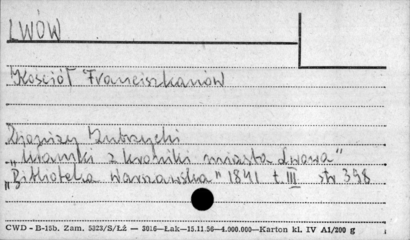 LWÓW
Kościół Franciszkanów
Dionizy Zubrzycki
„Ułamki z kroniki miasta Lwowa"
„Biblioteka Warszawska" 1841 t. III str 398
CWD - B-15b. Zam. 5323/S/Łż — 3016—Łak—15.11.56—4.000.000—Karton kl. IV A1/200 g